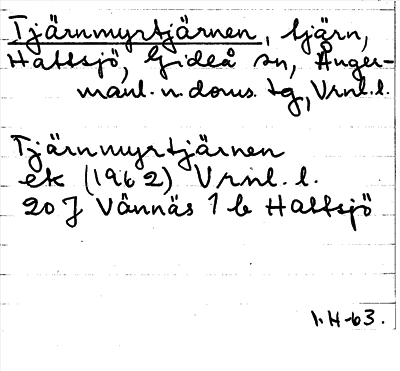 Tjärnmyrtjärnen, tjärn,
Hattsjö, Gideå sn, Ånger-
manl. n. doms. tg, Vrnl. l.
Tjärnmyrtjärnen
ek (1962) Vrnl. l.
20 J Vännäs 1 b Hattsjö
1.H-63.